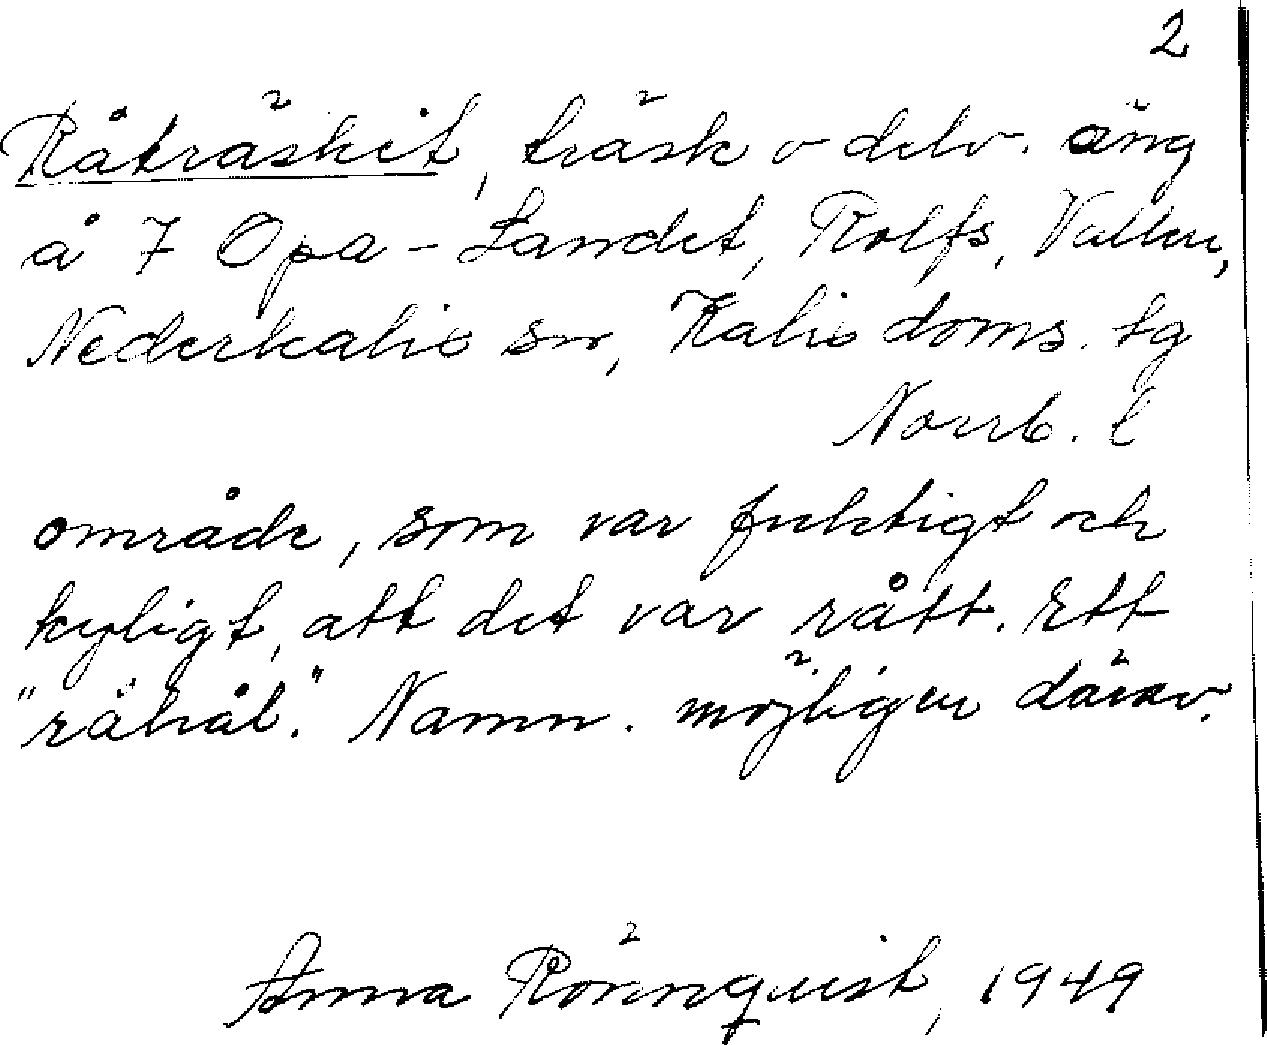 2
Råträsket, träsk o delv. äng
å 7 Opa-Landet, Rolfs, Vallen,
Nederkalix sn, Kalix doms. tg
Norrb. l
område, som var fuktigt och
kyligt, att det var rått. Ett
"råhål". Namn. möjligen därav.
Anna Rönnquist, 1949